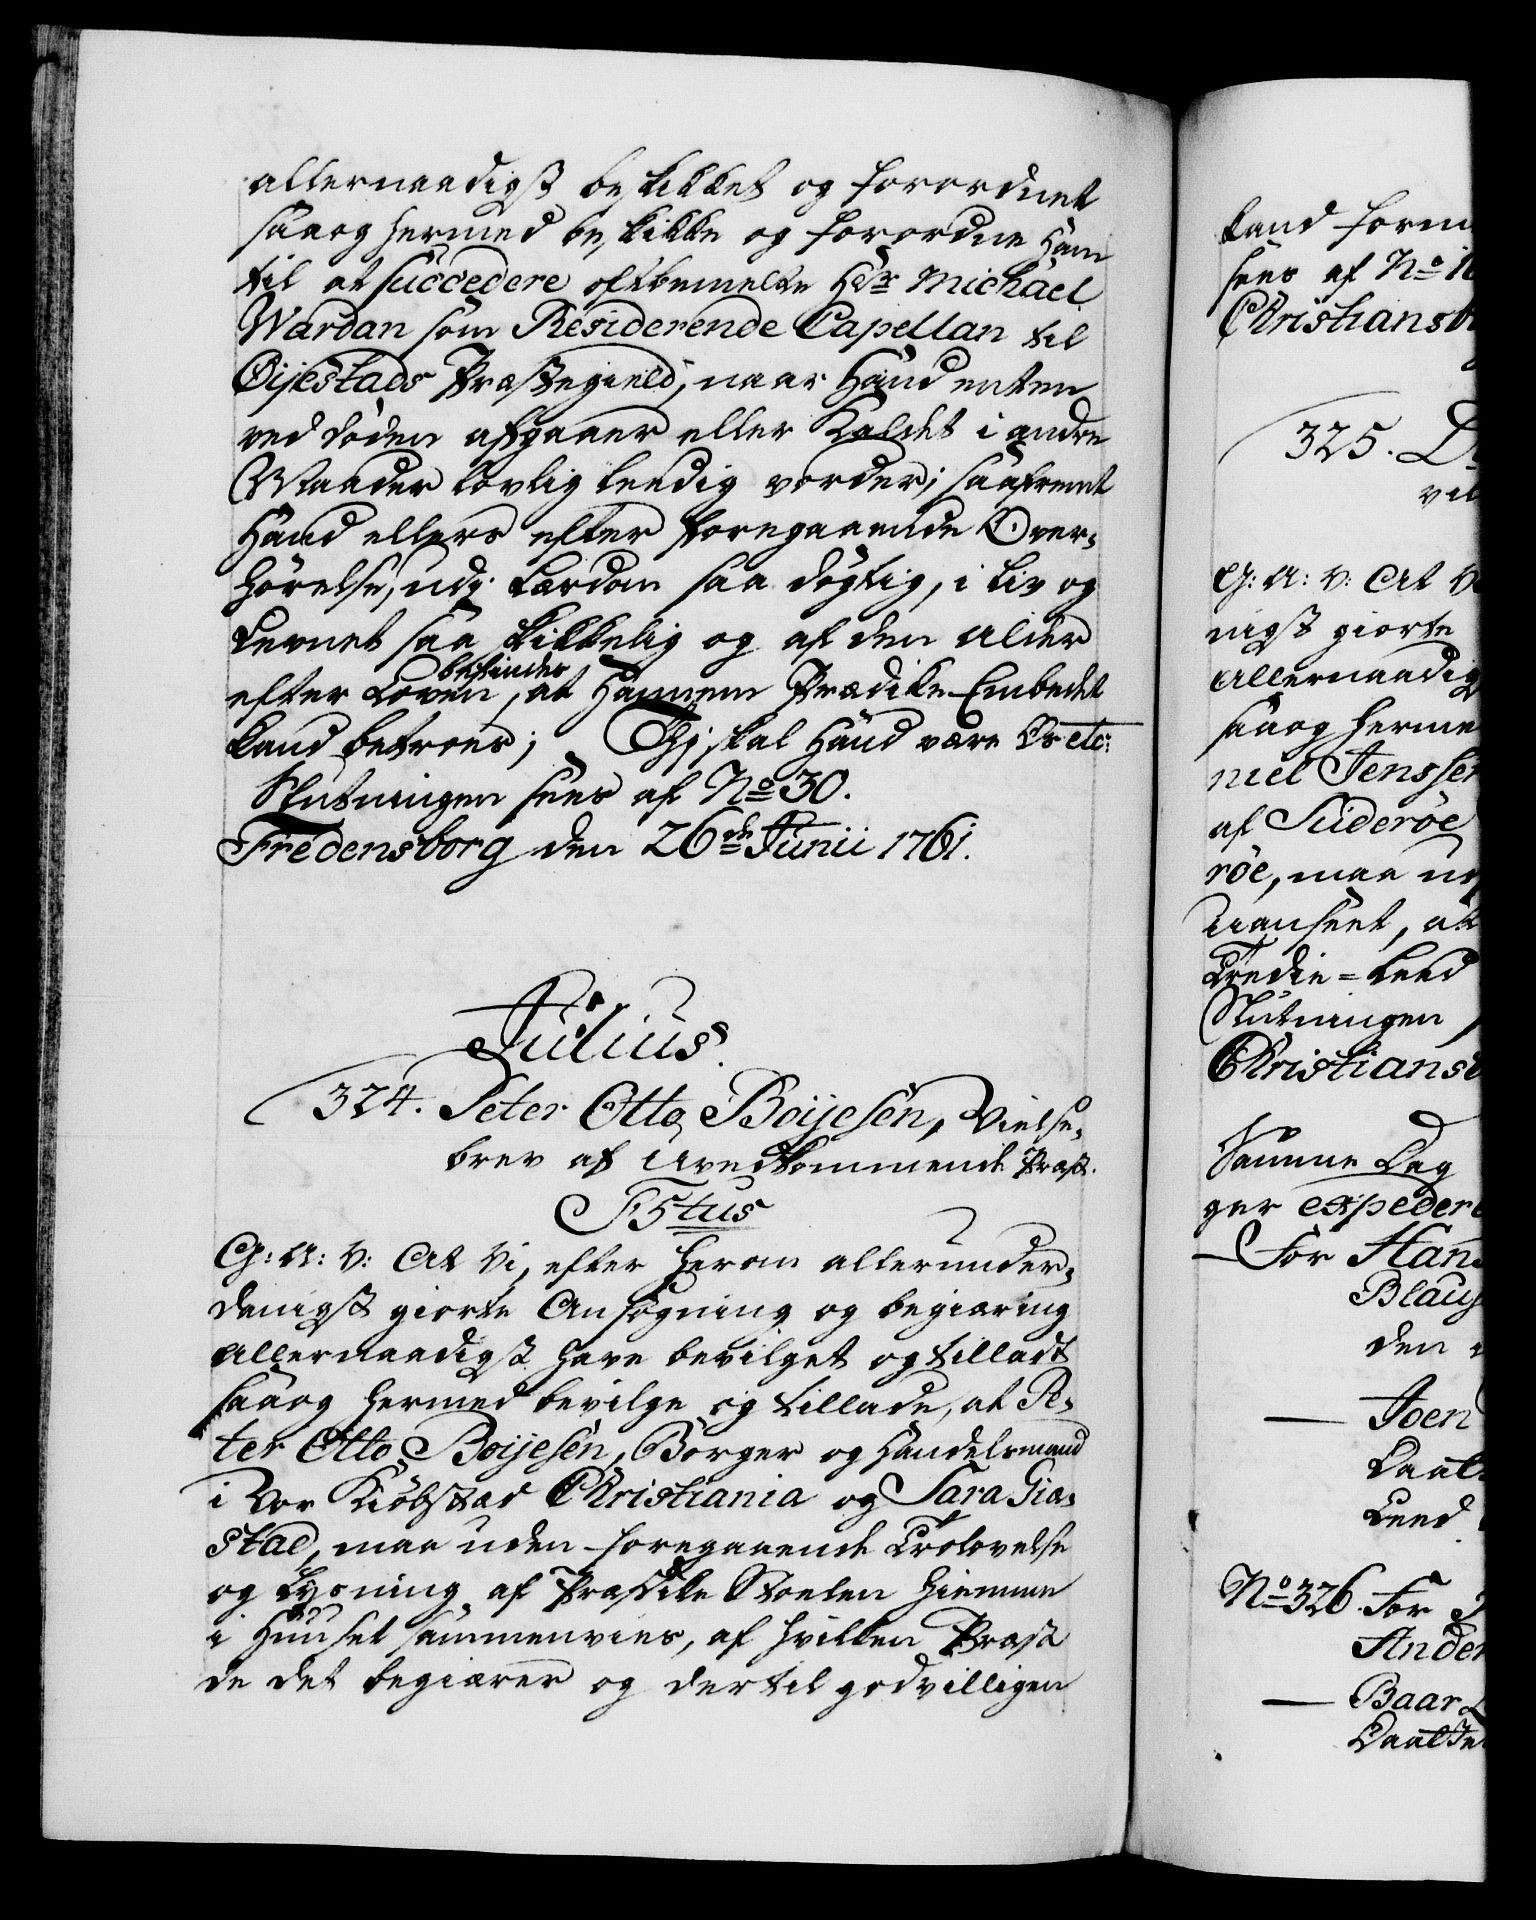 allernaadigst beskikket og forordnet
saaog hermed beskikke og forordne Ham
til at succedere oftbemelte Hr. Michäel
Wardan som Residerende Capellan til
Öijestads Præstegield, naar Hand enten
ved döden afgaaer eller Kaldet i andre
Maader lovlig leedig vorder; saafremt
Hand ellers efter foregaaende Over-
hörelse, udj Lærdom saa dögtig, i Liv og
Levnet saa skikkelig og af den Alder
efter Loven befindes, at Hannem Prædike-Embedet
kand betroes; Thj skal Hand være Os etc:
Slutningen sees af No 30.
Fredensborg den 26de Junii 1761.
Julius.
324. Peter Otto Boijesen, Vielse-
brev af Uvedkommende Præst.
F5tus
G: A: V: At Vi, efter herom allerunder-
danigst giorte Ansögning og begiæring
Allernaadigst have bevilget og tilladt
saaog hermed bevilge og tillade, at Pe-
ter Otto Boijesen, Borger og Handelsmand
i Vor Kiöbstad Christiania og Sara Gia-
stad, maa uden foregaaende Trolovelse
og Lysning af Prædike Stoelen hiemme
i Huuset sammenvies, af hvilken Præst
de det begiærer og dertil godvilligen
kand form
sees af No
Christiansb
325.
G: A: V: At V
nigst giorte
Allernaadig
saaog herme
niel Jenssen
af Süderöe
röe, maa
Uanseet, at
Tredie=Leed
Slutningen
Christiansb
Samme Dag
ger expeder
For Hans
Blaus
den
Joen
Leed
No 326. For
Ander
Baar